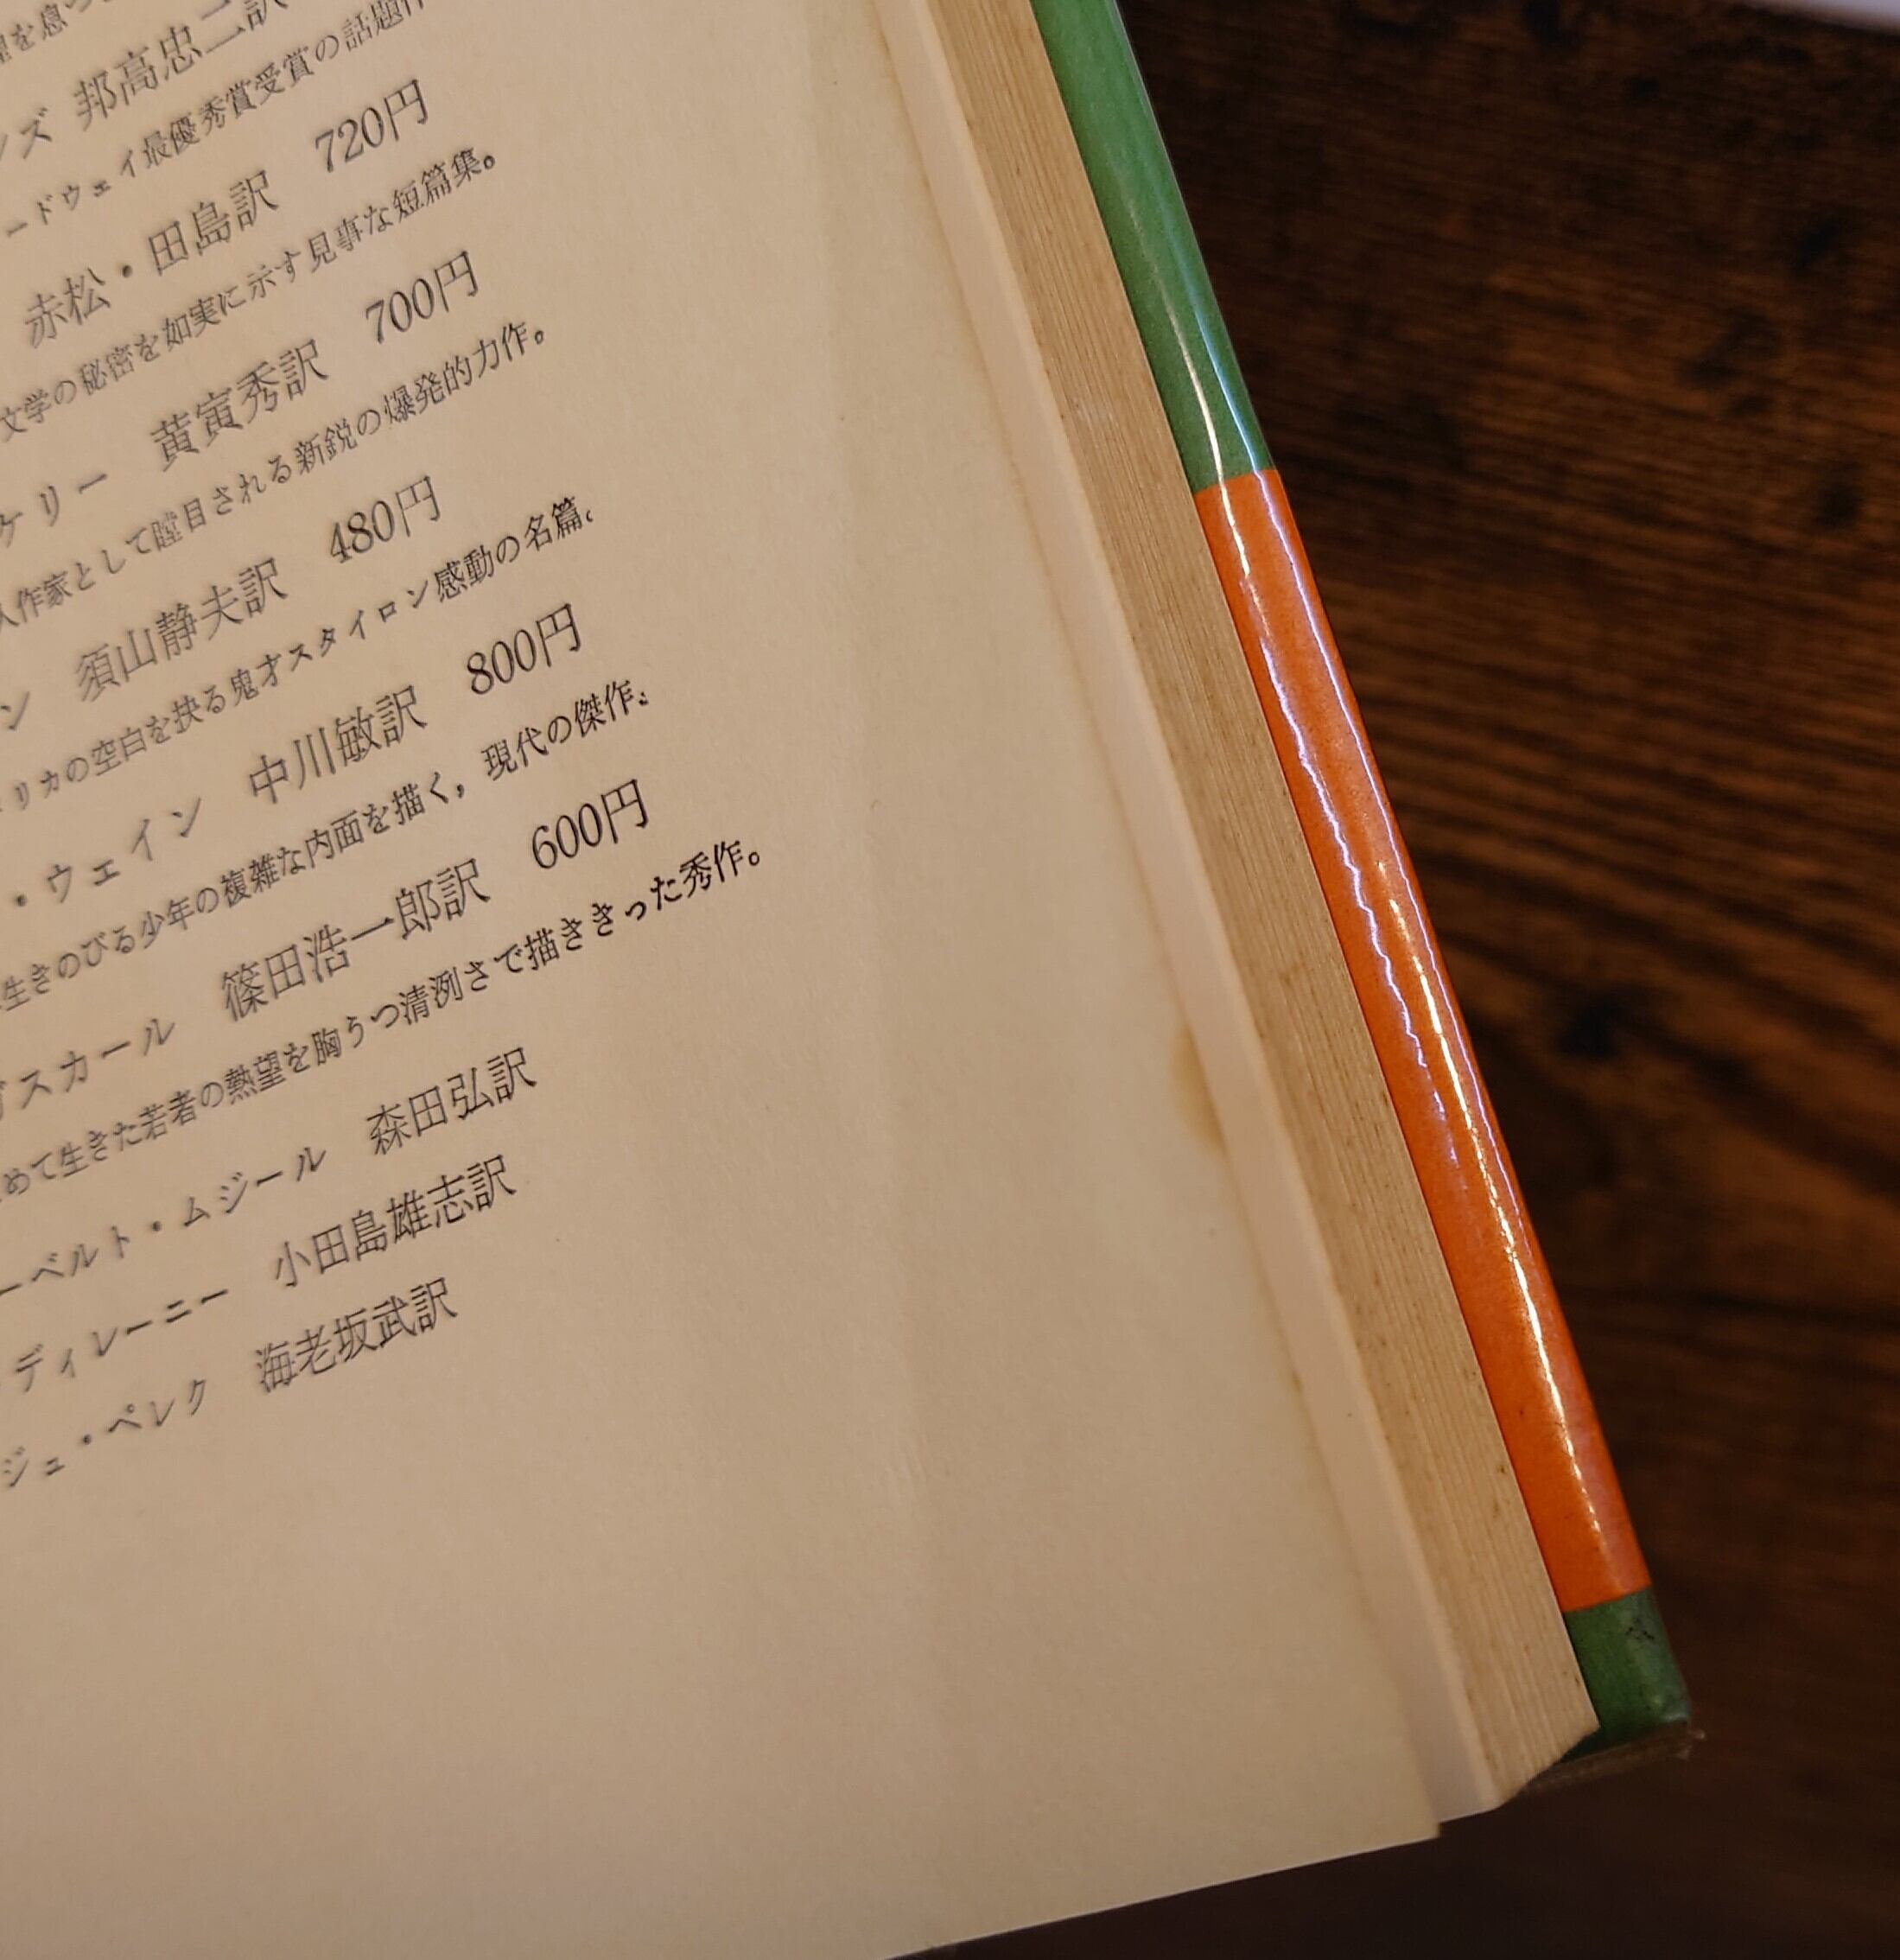 ンズ 邦高忠二訳
ードウェイ最優秀賞受賞の話題作
赤松・田島訳 720円
文学の秘密を如実に示す見事な短篇集。
ケリー 黄寅秀訳 700円
人作家として瞠目される新鋭の爆発的力作。
ン 須山静夫訳 480円
リカの空白を抉る鬼才スタイロン感動の名篇。
・ウェイン 中川敏訳 800円
生きのびる少年の複雑な内面を描く，現代の傑作。
ガスカール 篠田浩一郎訳 600円
めて生きた若者の熱望を胸うつ清冽さで描ききった秀作。
ーベルト・ムジール 森田弘訳
ディレーニー 小田島雄志訳
ジュ・ペレク 海老坂武訳